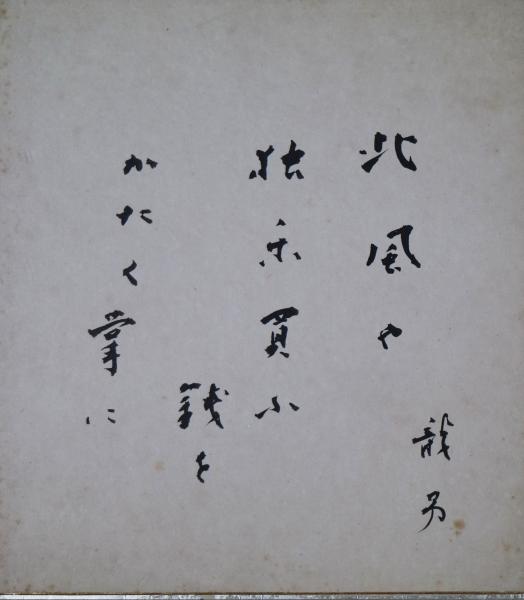 北風や
独楽買ふ
銭を
かたく掌に
龍男